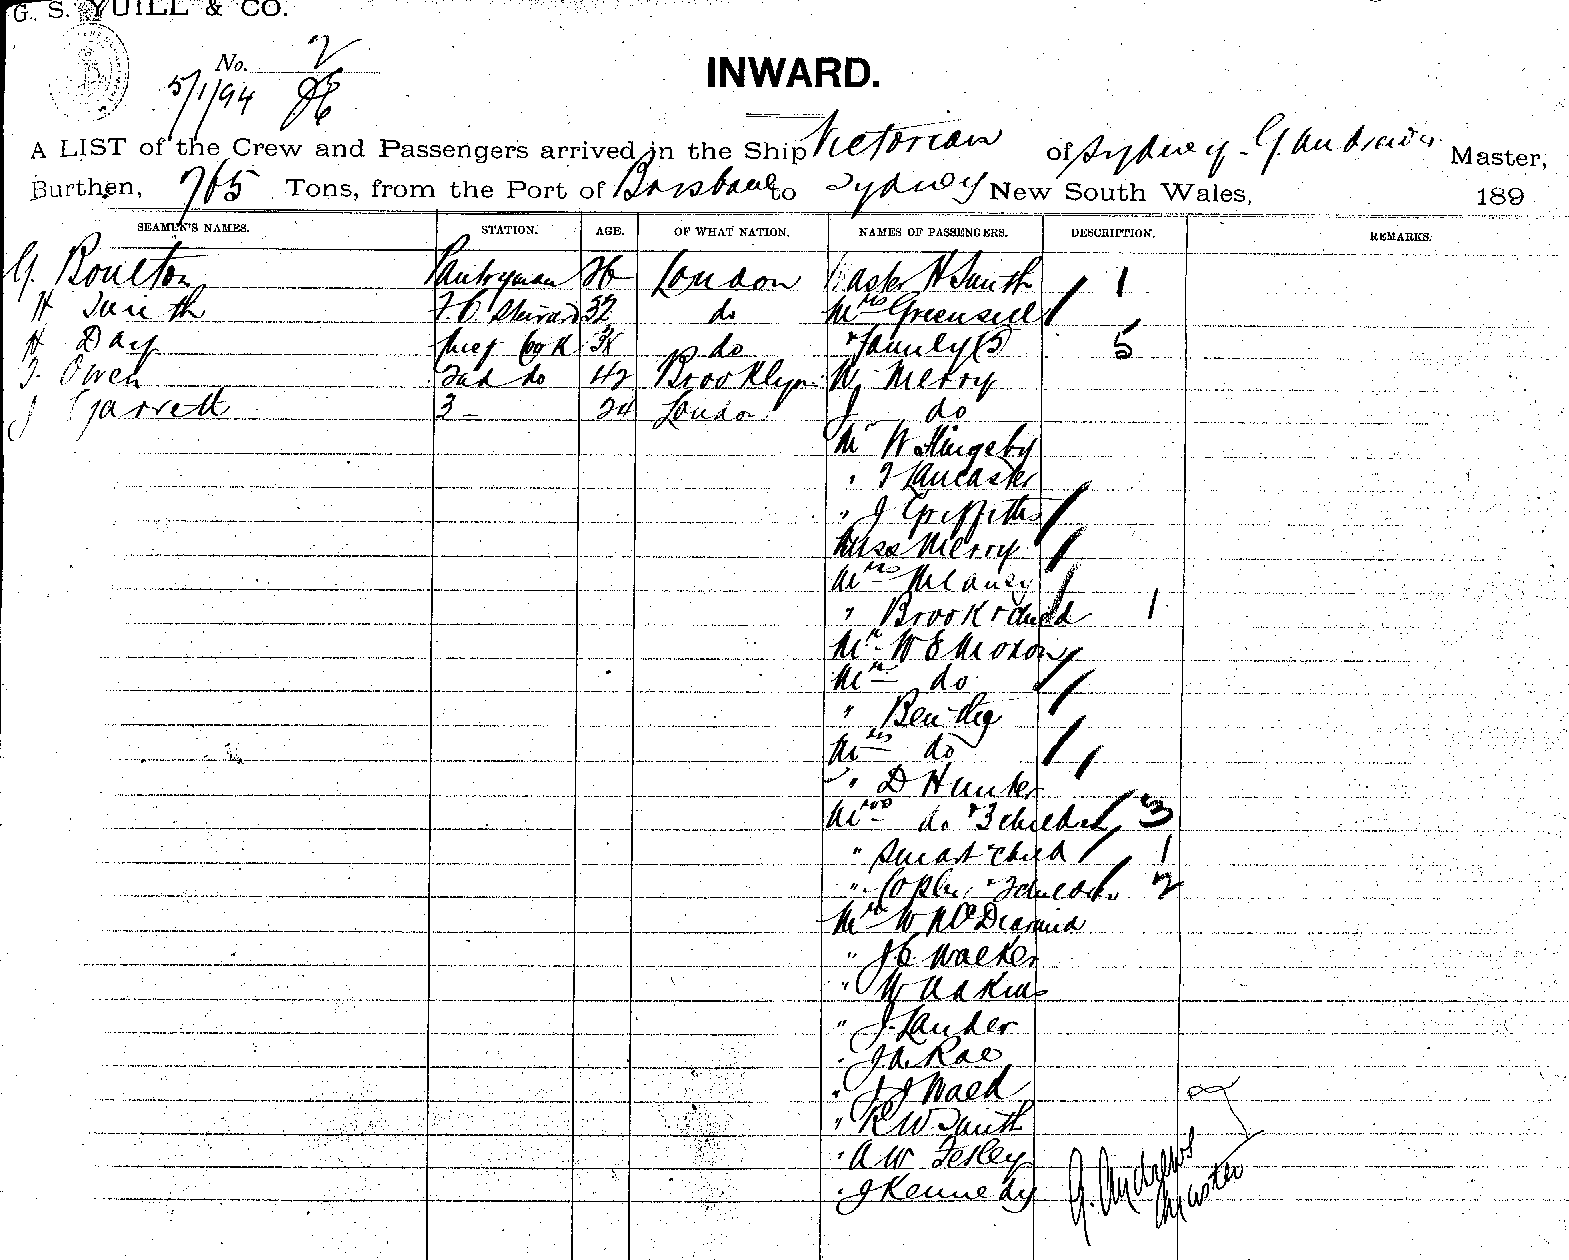 G. S. YUILL & CO.
No. 2
5/1/94
INWARD.
A LIST of the Crew and Passengers arrived in the Ship Victorian of Sydney G. Andrews Master,
Burthen, 765 Tons, from the Port of Brisbane to Sydney New South Wales, 189
SEAMEN'S NAMES. STATION. AGE. OF WHAT NATION. NAMES OF PASSENGERS. DESCRIPTION. REMARKS.
G. Boulton Pantryman 26 London Master H Smith 1
H Smith F C Steward 32 do Mrs Greensill
H Day Chief Cook 38 do & family (5) 5
J. Owen 2nd do 42 Brooklyn W. Merry
J Garrett 3 - 24 London J do
Mr W
" J Lancaster
" J Griffiths
Miss Merry
Mrs
" Brook & child 1
Mr W E Moxon
Mrs do
"
Mrs do
" D Hunter
Mrs do & 3 children 3
" Smart & child 1
" & 2 children 2
Mr W McDiarmid
" J C Walker
" W Adkins
" J. Lander
" J A Rae
" J J Ward
" R W Smith
" A W
" J Kennedy
G. Andrews
Master